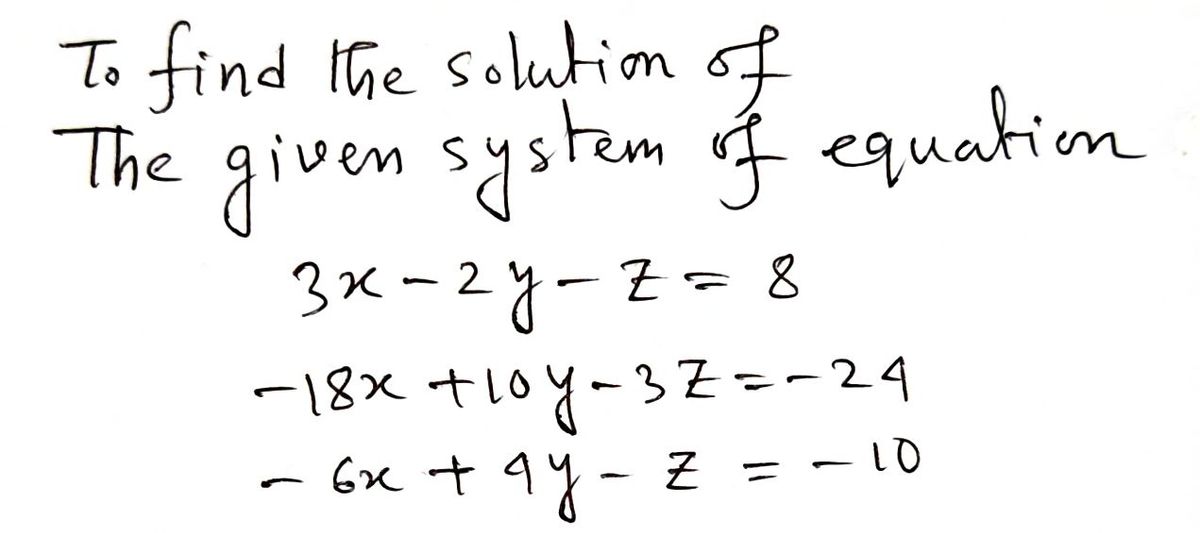 To find the solution of
The given system of equation
3x - 2y - z = 8
-18x + 10y - 3z = -24
- 6x + 4y - z = -10